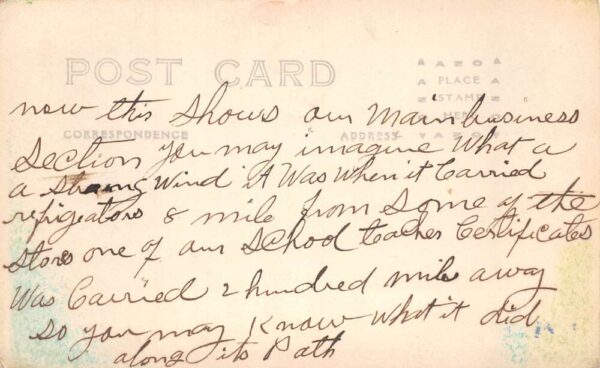 POST CARD
AZO
PLACE
STAMP
HERE
AZO
CORRESPONDENCE
ADDRESS
now this shows our Main business
Section you may imagine What a
a strong Wind it Was When it Carried
refrigeators 8 mile from some of the
stores one of our School teacher Certificates
Was Carried 2 hundred mile away
so you may Know what it did
along its Path